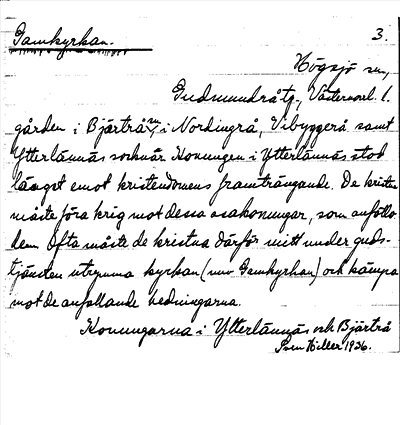 Gamkyrkan. 3.
Högsjö sn,
Gudmundrå tg, Västernorrl. l.
gården i Bjärtrå sn, i Nordingrå, Vibyggerå samt
Ytterlännäs socknar. Konungen i Ytterlännäs stod
längst emot kristendomens framträngande. De kristna
måste föra krig mot dessa asakonungar, som anföllo
dem. Ofta måste de kristna därför mitt under guds-
tjänsten utrymma kyrkan (nuv Gamkyrkan) och kämpa
mot de anfallande hedningarna.
Konungarna i Ytterlännäs och Bjärtrå
1936.